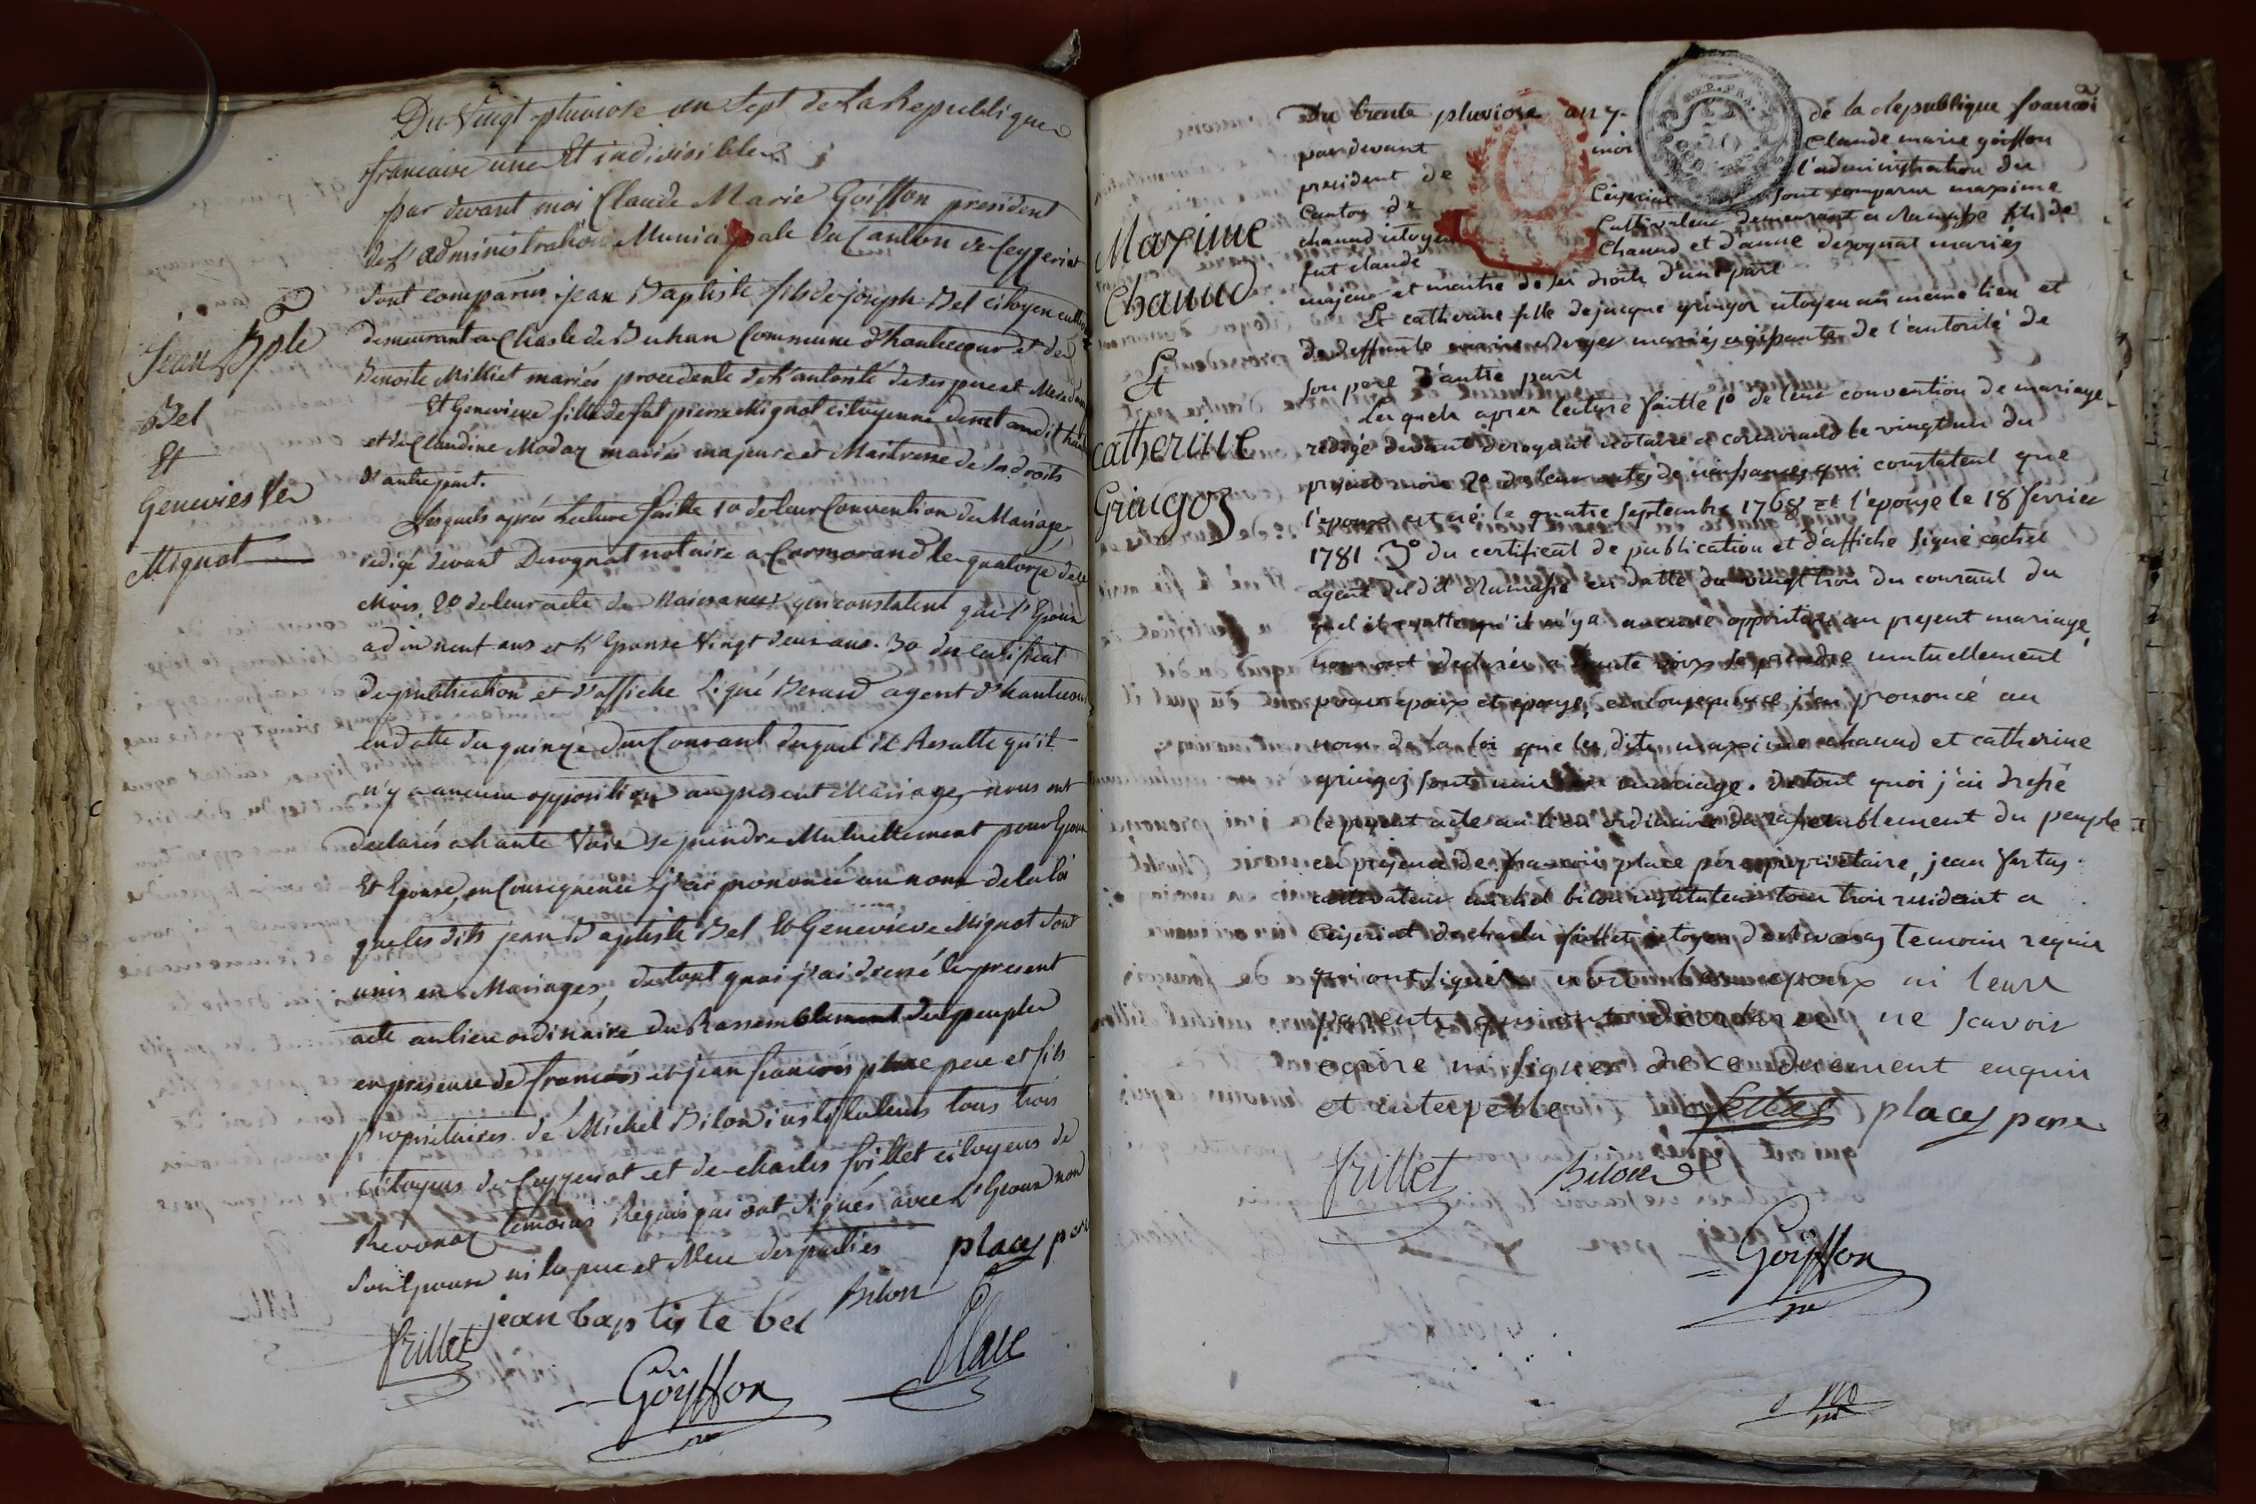 Du Vingt pluviose an Sept de La Republique
francaise une Et indivisible
par devant moi Claude Marie Goiffon president
de L'administration Municipale Du Canton de Ceyzeriat
Sont comparus jean Baptiste fils de joseph Bel citoyen
demeurant a Chasle de Buhan Commune d'hautecour et de
Benoite Milliet mariés procedente de L'autorité de ses pere et Mere
Et Genevieve fille de fut pierre Mignot citoyenne
et de Claudine Modaz mariés majeure et Maitresse de Ses droits
D'autre part.
Lesquels après Lecture faitte 1o de leur Convention de Mariage
redigé devant Derognat notaire a Cormorand le quatorze de ce
Mois, 2o de leur acte de Naissance qui constatent que L'Epoux
a dix neuf ans et L'Epouse Vingt deux ans. 3o du certificat
de publication et d'affiche Signé Beraud agent d'hautecour
en datte du quinze du Courant duquel il Resulte qu'il
n'y a aucune opposition au present Mariage, nous ont
declarés a haute Voix se prendre Mutuellement pour Epoux
Et Epouse, en Consequence j'ai prononcé au nom de la loi
que les dits jean Baptiste Bel Et Genevieve Mignot Sont
unis en Mariages, de tout quoi j'ai dressé le present
acte au lieu ordinaire du Rassemblement du peuple
en presence de francois et jean francois place pere et fils
propriétaires de Michel Bilon instituteurs tous trois
citoyens de Ceyzeriat et de charles frillet citoyens de
Revonaz temoins Requis qui ont Signés avec L'Epoux non
Son Epouse ni les pere et Mere des parties
jean baptiste bel
Bilon
place pere
frillet
Goÿffon
Place
Jean Bpte
Bel
Et
Genevieve
Mignot
Du trente pluviose an 7 de la Republique francoi
pardevant moi Claude marie goiffon
president de l'administration du
Canton de Ceyseriat sont comparu maxime
chanud citoyen Cultivateur demeurant a Ramasse fils de
fut claude Chanud et d'anne derognat mariés
majeur et maitre de ses droits d'une part
Et catherine fille de jacque gringoz citoyen au même lieu et
de deffunte marie mariés agissante de l'autorité de
son pere d'autre part
Lesquels apres lecture faitte 1o de leur convention de mariage
redigé devant derognat notaire a cormorand le vingt un du
present mois 2o de leur actes de naissances qui constatent que
l'epoux est né le quatre septembre 1768 et l'epouse le 18 fevrier
1781 3o du certificat de publication et d'affiche signé cochet
agent du dit Ramasse en datte du vingt trois du courant du
quel il resulte qu'il n'y a aucune opposition au present mariage,
nous ont declarés a haute voix se prendre mutuellement
pour epoux et epouse, en consequence j'ai prononcé au
nom de la loi que les dits maxime chanud et catherine
gringoz sont unis en mariage. de tout quoi j'ai dressé
le present acte au lieu ordinaire du rassemblement du peuple
en presence de francois place père proprietaire, jean
cultivateur michel bilon instituteur tous trois residant a
Ceiseriat de charles frillet citoyen de Revonaz temoin requis
qui ont signés non les epoux ni leurs
parents qui ont declaré ne scavoir
ecrire ni signer de ce duement enquis
et interpellé
place pere
frillet
Bilon
Goÿffon
Maxime
Chanud
Et
catherine
Gringoz